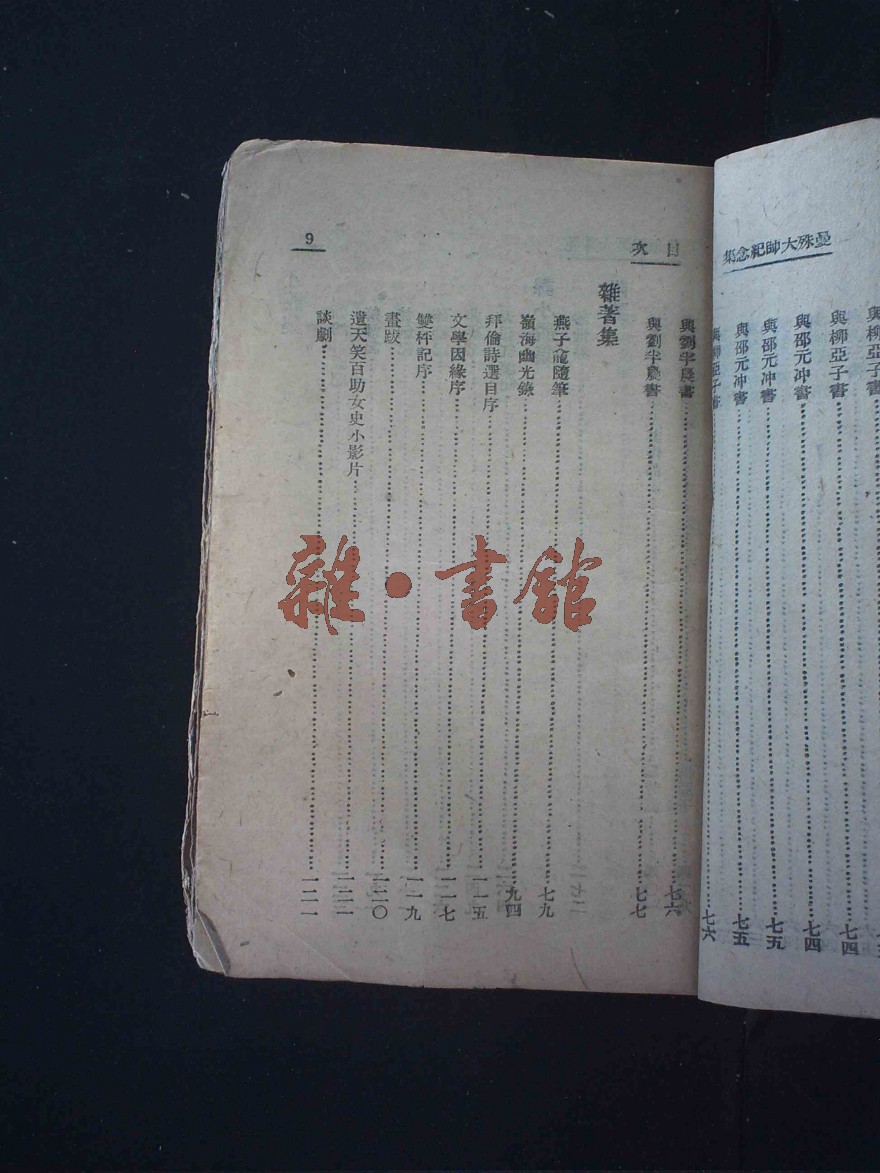 曼殊大師紀念集
與柳亞子書
與柳亞子書……七四
與邵元冲書……七四
與邵元冲書……七五
與邵元冲書……七五
與柳亞子書……七六
目次
9
與劉半農書……七六
與劉半農書……七七
雜著集
燕子龕隨筆……七九
嶺海幽光錄……九四
拜倫詩選目序……一一五
文學因緣序……一一七
雙枰記序……一一九
畫跋……一二〇
遺天笑百助女史小影片……一二一
談劇……一二一
雜·書館